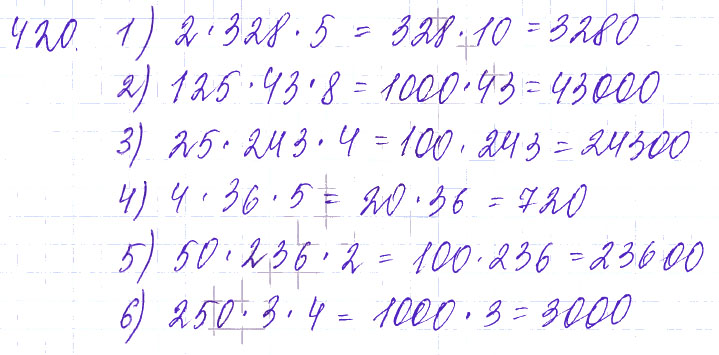 420. 1) 2·328·5 = 328·10 = 3280
2) 125·43·8 = 1000·43 = 43000
3) 25·243·4 = 100·243 = 24300
4) 4·36·5 = 20·36 = 720
5) 50·236·2 = 100·236 = 23600
6) 250·3·4 = 1000·3 = 3000